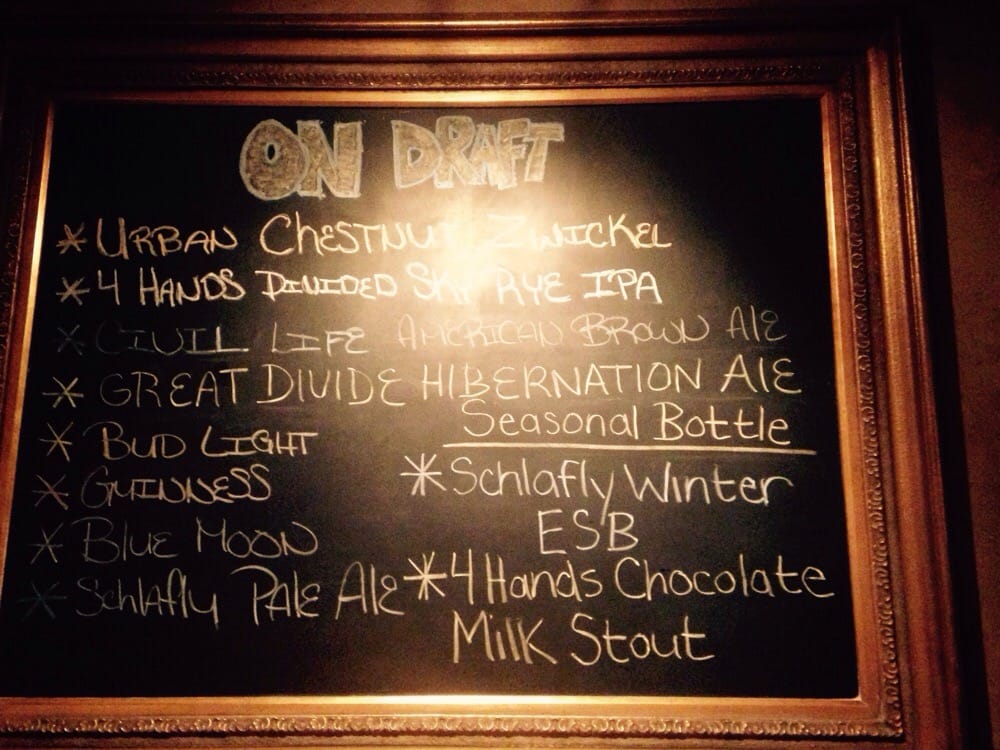 ON DRAFT
* URBAN CHESTNUT ZWICKEL
* 4 HANDS DIVIDED SKY RYE IPA
* CIVIL LIFE AMERICAN BROWN ALE
* GREAT DIVIDE HIBERNATION ALE
* BUD LIGHT
* GUINNESS
* BLUE MOON
* Schlafly PALE ALE
Seasonal Bottle
* Schlafly Winter
ESB
* 4 Hands Chocolate
Milk Stout